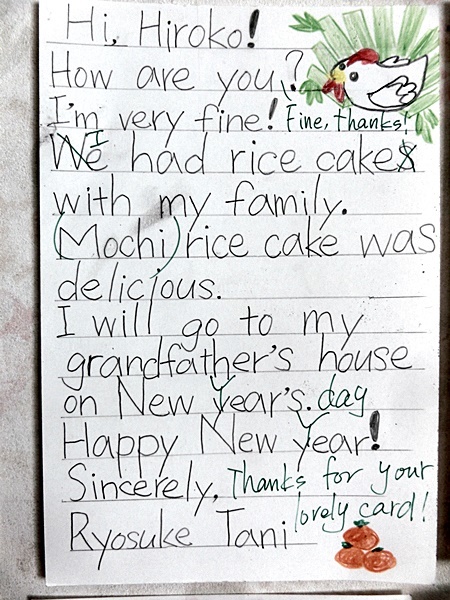 Hi, Hiroko!
How are you?
I'm very fine! Fine, thanks!
We I had rice cakes
with my family.
(Mochi) rice cake was
delicious.
I will go to my
grandfather's house
on New Year's. day
Happy New Year!
Sincerely, Thanks for your
lovely card!
Ryosuke Tani